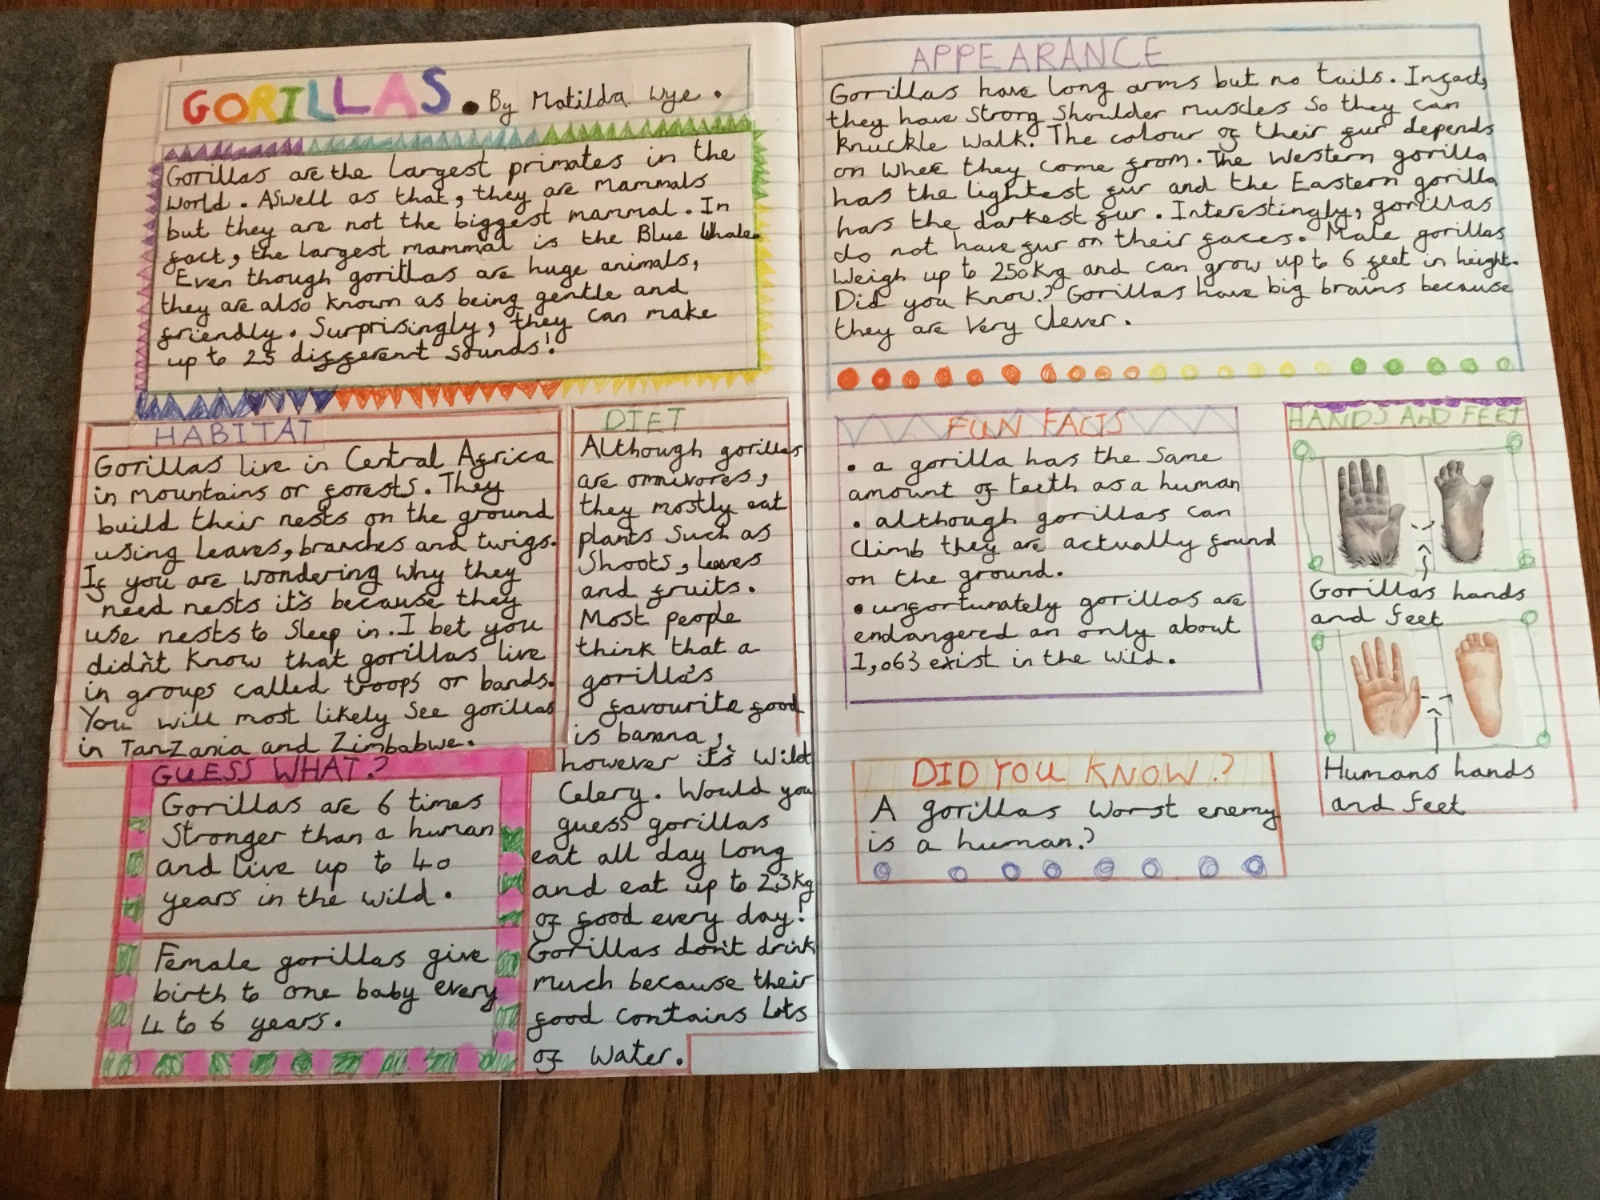 GORILLAS. By Matilda Wye.
Gorillas are the largest primates in the
World. Aswell as that, they are mammals
but they are not the biggest mammal. In
fact, the largest mammal is the Blue Whale.
Even though gorillas are huge animals,
they are also known as being gentle and
friendly. Surprisingly, they can make
up to 25 different sounds!
HABITAT
Gorillas live in Central Africa
in mountains or forests. They
build their nests on the ground
using leaves, branches and twigs.
If you are wondering why they
need nests it's because they
use nests to sleep in. I bet you
didn't know that gorillas live
in groups called troops or bands.
You will most likely see gorillas
in Tanzania and Zimbabwe.
DIET
Although gorillas
are omnivores,
they mostly eat
plants such as
Shoots, leaves
and fruits.
Most people
think that a
gorilla's
favourite food
is banana,
however it's wild
Celery. Would you
guess gorillas
eat all day long
and eat up to 23kg
of food every day!
Gorillas don't drink
much because their
food contains lots
of water.
GUESS WHAT?
Gorillas are 6 times
Stronger than a human
and live up to 40
years in the wild.
Female gorillas give
birth to one baby every
4 to 6 years.
APPEARANCE
Gorillas have long arms but no tails. Infact,
they have strong shoulder muscles so they can
knuckle walk. The colour of their fur depends
on whee they come from. The Western gorilla
has the lightest fur and the Eastern gorilla
has the darkest fur. Interestingly, gorillas
do not have fur on their faces. Male gorillas
Weigh up to 250kg and can grow up to 6 feet in height.
Did you know? Gorillas have big brains because
they are very clever.
FUN FACTS
• a gorilla has the same
amount of teeth as a human
• although gorillas can
climb they are actually found
on the ground.
• unfortunately gorillas are
endangered an only about
1,063 exist in the wild.
HANDS AND FEET
Gorillas hands
and feet
Humans hands
and feet
DID YOU KNOW?
A gorillas worst enemy
is a human?